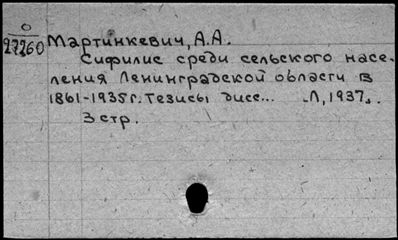 О
27260
Мартинкевич, А.А.
Сифилис среди сельского насе-
ления Ленинградской области в
1861-1935г. Тезисы дисс... Л, 1937.
3 стр.